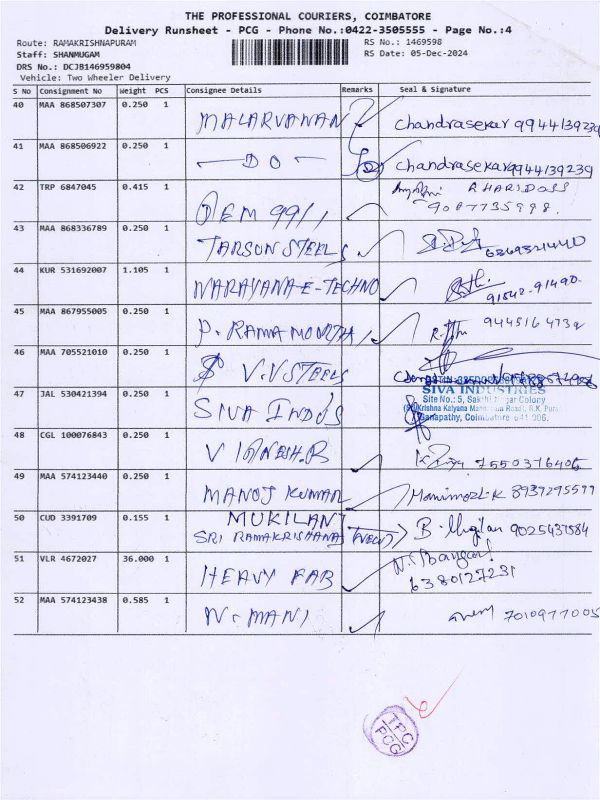 THE PROFESSIONAL COURIERS, COIMBATORE
Delivery Runsheet - PCG - Phone No.:0422-3505555 - Page No.:4
Route: RAMAKRISHNAPURAM
RS No.: 1469598
Staff: SHANMUGAM
RS Date: 05-Dec-2024
DRS No.: DCJB146959804
Vehicle: Two Wheeler Delivery
S No Consignment No Weight PCS Consignee Details Remarks Seal & Signature
40 MAA 868507307 0.250 1 MALARVANAN chandrasekar 9944139239
41 MAA 868506922 0.250 1 DO chandrasekar 9944139239
42 TRP 6847045 0.415 1 R HARIDOSS
43 MAA 868336789 0.250 1 TARSON STEELS
44 KUR 531692007 1.105 1 NARAYANA E-TECHNO 91542-91490
45 MAA 867955005 0.250 1 9445164732
46 MAA 705521010 0.250 1 V.V STEELS
47 JAL 530421394 0.250 1 SIVA INDUS
SIVA INDUSTRIES
Site No.: 5, Sakthi Nagar Colony
Ganapathy, Coimbatore-641 006.
48 CGL 100076843 0.250 1 VIGNESH.B 7550376406
49 MAA 574123440 0.250 1 MANOJ KUMAR 8939295599
50 CUD 3391709 0.155 1 MUKILAN 9025437584
SRI RAMAKRISHANA
51 VLR 4672027 36.000 1 HEAVY FAB
6380127231
52 MAA 574123438 0.585 1 N. MANI 7010977005
TPC
PCG